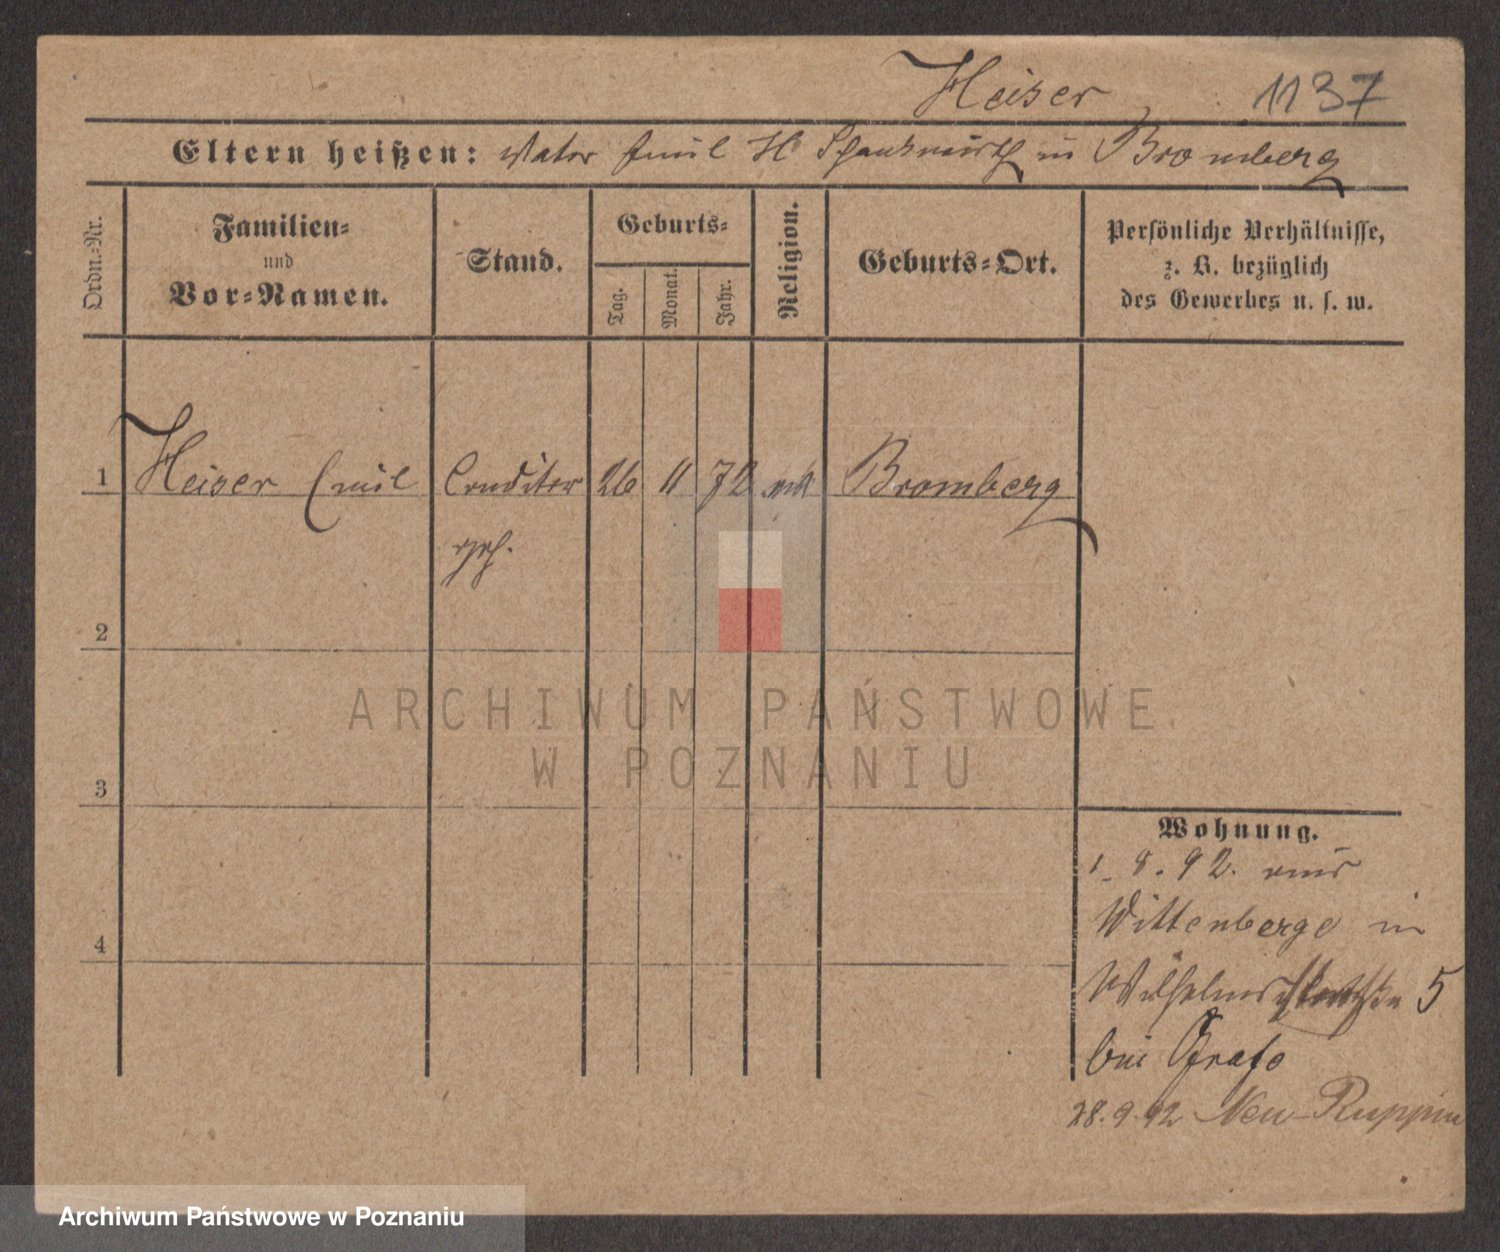 Heiser 1137
Eltern heißen: Vater Emil H. Schankwirth in Bromberg
Ordn.-Nr.
Familien-
und
Vor-Namen.
Stand.
Geburts-
Tag.
Monat.
Jahr.
Religion.
Geburts-Ort.
Persönliche Verhältnisse,
z. B. bezüglich
des Gewerbes u. s. w.
1 Heiser Emil Conditor 26 11 72 Bromberg
geh.
2
3
4
Wohnung.
1. 8. 92. aus
Wittenberge in
Wilhelms 5
bei Grafe
28. 9. 92 Neu-Ruppin
ARCHIWUM PAŃSTWOWE
W POZNANIU
Archiwum Państwowe w Poznaniu